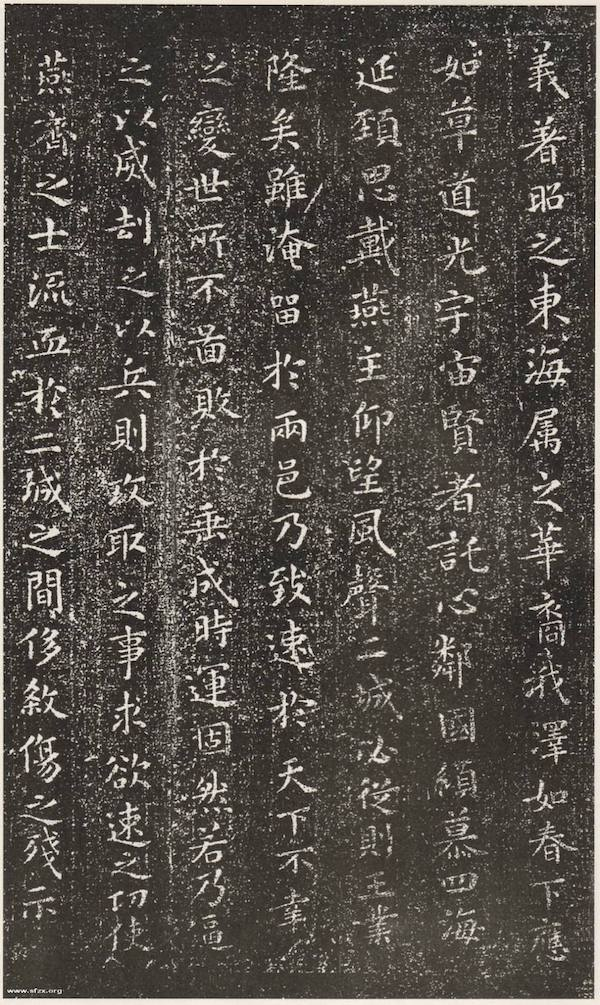 義著昭之東海属之華裔我澤如春下應
如草道光宇宙賢者託心鄰國傾慕四海
延頸思戴燕主仰望風聲二城必從則王業
隆矣雖淹留於兩邑乃致速於天下不幸
之變世所不啚敗於垂成時運固然若乃逼
之以威刼之以兵則攻取之事求欲速之功使
燕齊之士流血於二城之間侈敘傷之殘示
www.sfzx.org